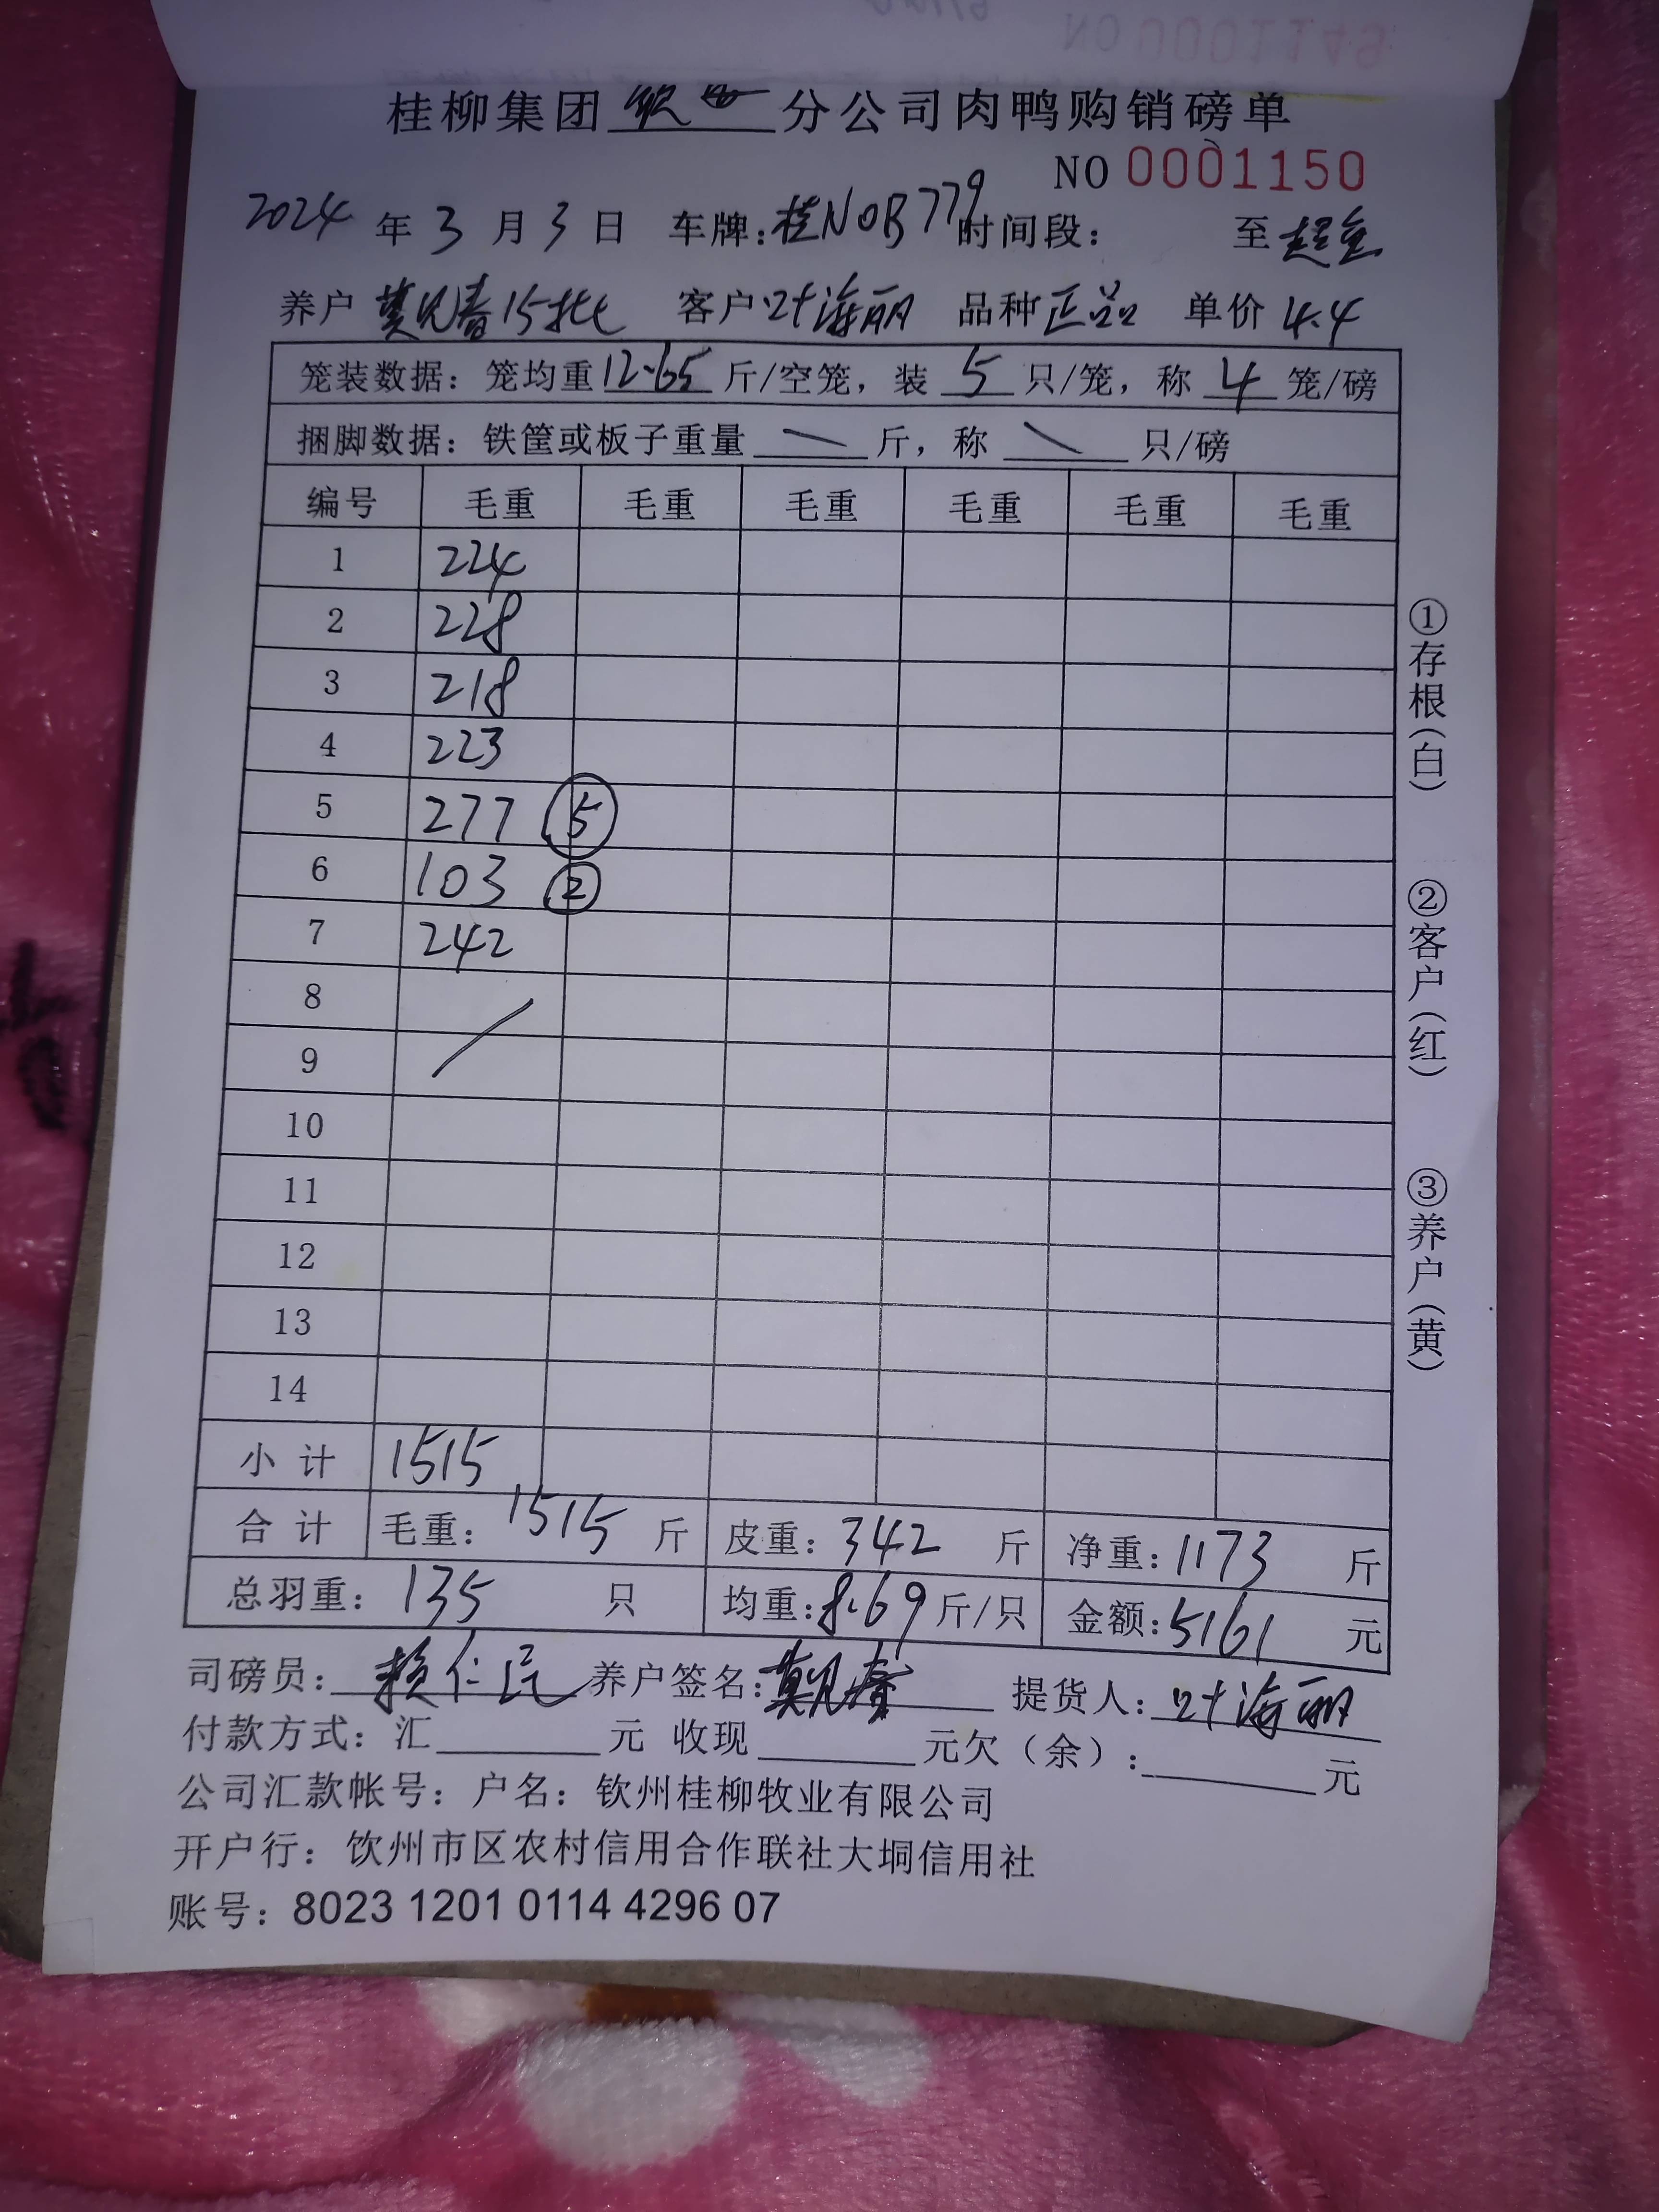 桂柳集团分公司肉鸭购销磅单
NO 0001150
2024年3月3日 车牌:桂N0B779 时间段: 至
养户 莫见春15批 客户 叶海丽 品种 正品 单价 4.4
笼装数据: 笼均重 12.65 斤/空笼, 装 5 只/笼, 称 4 笼/磅
捆脚数据: 铁筐或板子重量 斤, 称 只/磅
编号 毛重 毛重 毛重 毛重 毛重 毛重
1 224
2 228
3 218
4 223
5 277 ⑤
6 103 ②
7 242
8
9
10
11
12
13
14
小计 1515
合计 毛重: 1515 斤 皮重: 342 斤 净重: 1173 斤
总羽重: 135 只 均重: 8.69 斤/只 金额: 5161 元
司磅员: 赖仁民 养户签名: 莫见春 提货人: 叶海丽
付款方式: 汇 元 收现 元 欠(余): 元
公司汇款帐号: 户名: 钦州桂柳牧业有限公司
开户行: 钦州市区农村信用合作联社大垌信用社
账号: 8023 1201 0114 4296 07
①存根(白)
②客户(红)
③养户(黄)